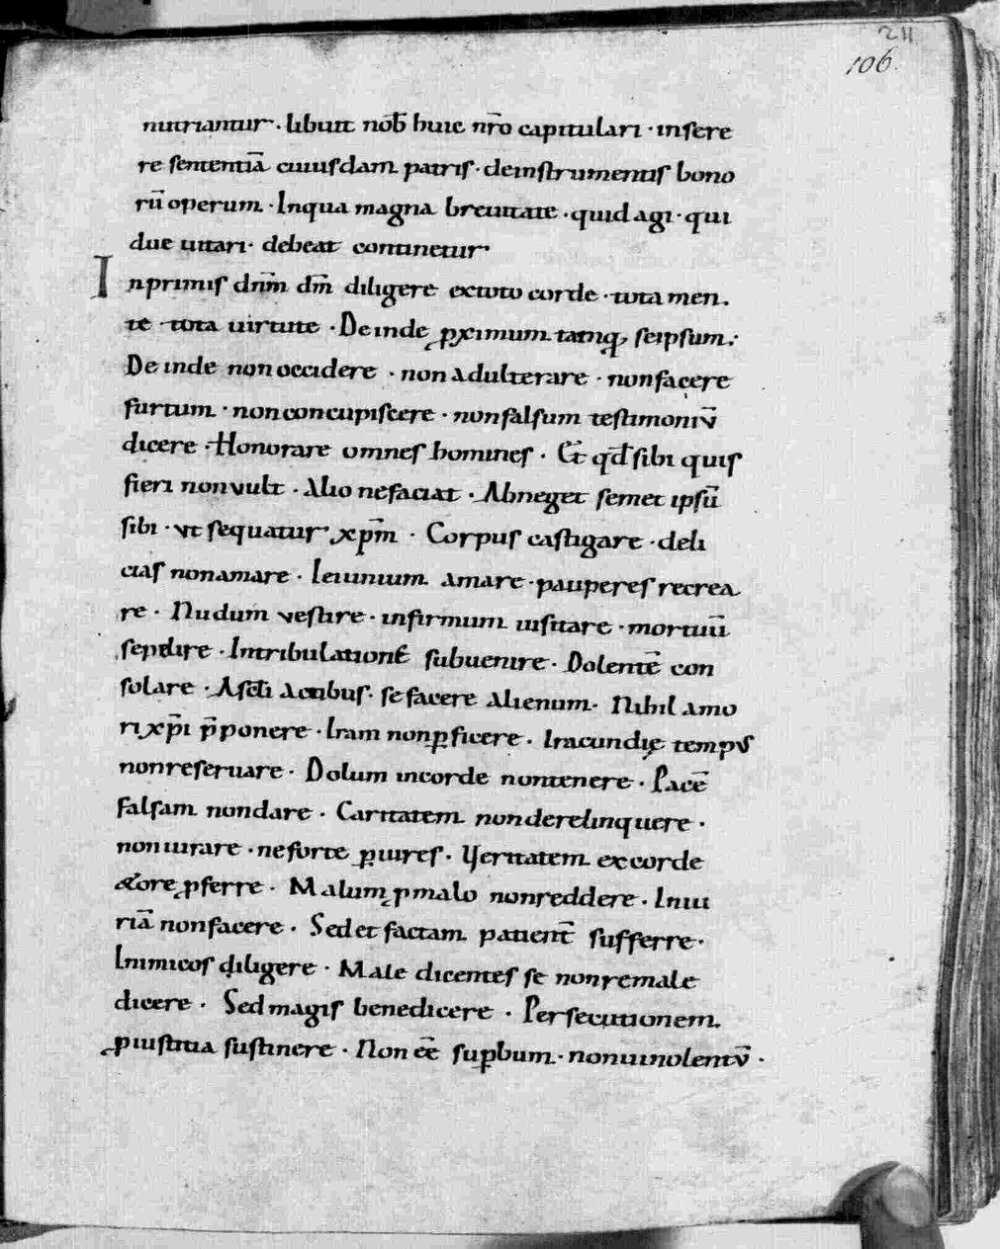 211
106
nutriantur · libuit nob̄ huic nr̄o capitulari · insere
re sententiā cuiusdam patris · deinstrumentis bono
rū operum · Inqua magna breuitate · quid agi · qui
due uitari · debeat continetur
Inprimis dn̄m dm̄ diligere extoto corde · tota men.
te · tota uirtute · Deinde ꝓximum tamq, seipsum ;
De inde non occidere · non adulterare · non facere
furtum · non concupiscere · non falsum testimoniū
dicere · Honorare omnes homines · Et qd̄ sibi quis
fieri non vult · Alio nefaciat · Abneget semet ipsū
sibi · vt sequatur xp̄m · Corpus castigare · deli
cias non amare · Ieiunium amare · pauperes recrea
re · Nudum vestire · infirmum uisitare · mortuū
sepelire · Intribulationē subuenire · Dolentē con
solare · Ascl̄i actibus · se facere alienum · Nihil amo
ri xp̄i p̄ponere · Iram non ꝑficere · Iracundię tempus
non reseruare · Dolum incorde non tenere · Pacē
falsam non dare · Caritatem non derelinquere ·
non iurare · ne forte ꝑiures · Ueritatem ex corde
&ore ꝓferre · Malum ꝓ malo non reddere · Iniu
riā non facere · Sed et factam patient̄ sufferre ·
Inimicos diligere · Male dicentes se non remale
dicere · Sed magis benedicere · Persecutionem
ꝓ iustitia sustinere · Non eē suꝑbum · non uinolentū ·